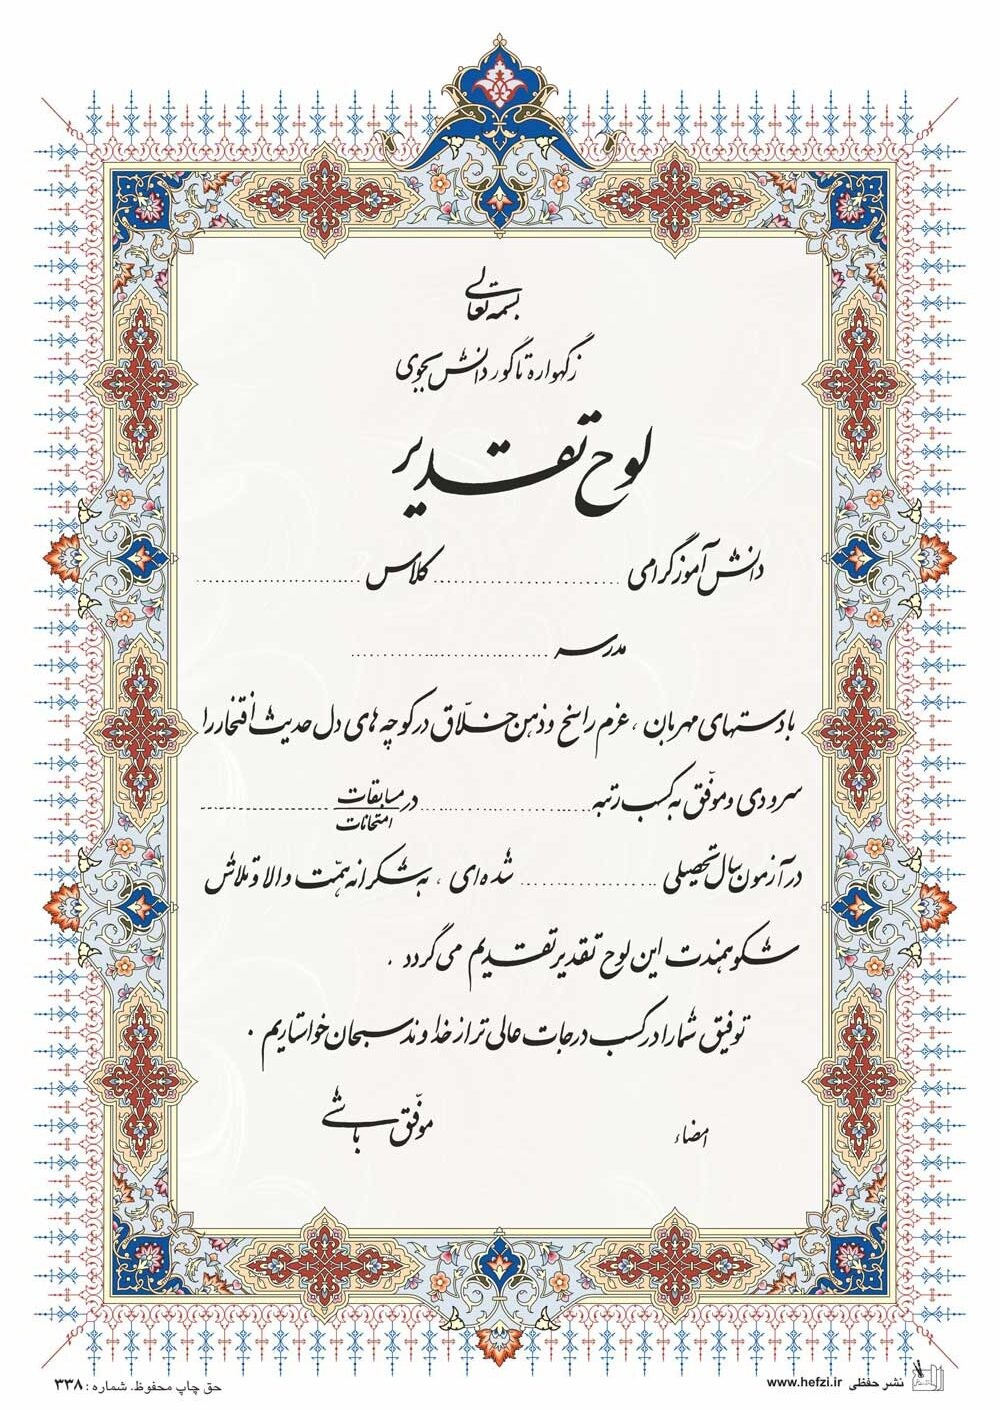 بسمه تعالی
زگهواره تا گور دانش بجوی
لوح تقدیر
دانش آموز گرامی ........................ کلاس ........................
مدرسه ........................
با دستهای مهربان ، عزم راسخ و ذهن خلّاق در کوچه های دل حدیث افتخار را
سرودی و موفّق به کسب رتبه ........................ در مسابقات ........................
امتحانات
در آزمون سال تحصیلی ........................ شده ای ، به شکرانه همّت والا و تلاش
شکوهمندت این لوح تقدیر تقدیم می گردد .
توفیق شما را در کسب درجات عالی تر از خداوند سبحان خواستاریم .
امضاء
موفّق باشی
نشر حفظی www.hefzi.ir
حق چاپ محفوظ. شماره : ۳۳۸